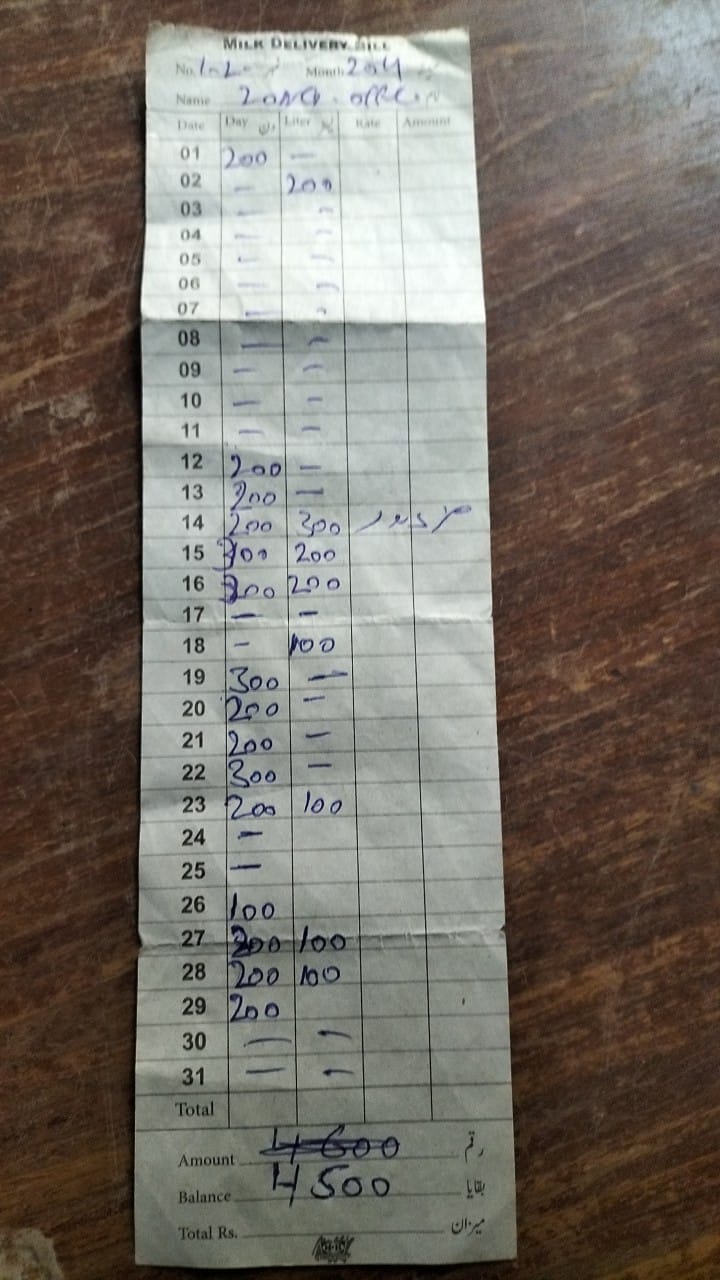 MILK DELIVERY BILL
No. 1-2- نمبر Month 204
Name ZONG. نام
Date Day دن Liter لیٹر Rate Amount
01 200 —
02 — 200
03 — —
04 — —
05 — —
06 — —
07 — —
08 — —
09 — —
10 — —
11 — —
12 200 —
13 200 —
14 200 300
15 300 200
16 300 200
17 — —
18 — 100
19 300 —
20 200 —
21 200 —
22 300 —
23 200 100
24 —
25 —
26 100
27 200 100
28 200 100
29 200
30 — —
31 — —
Total
Amount 4600 رقم
Balance 4500 بقایا
Total Rs. میزان